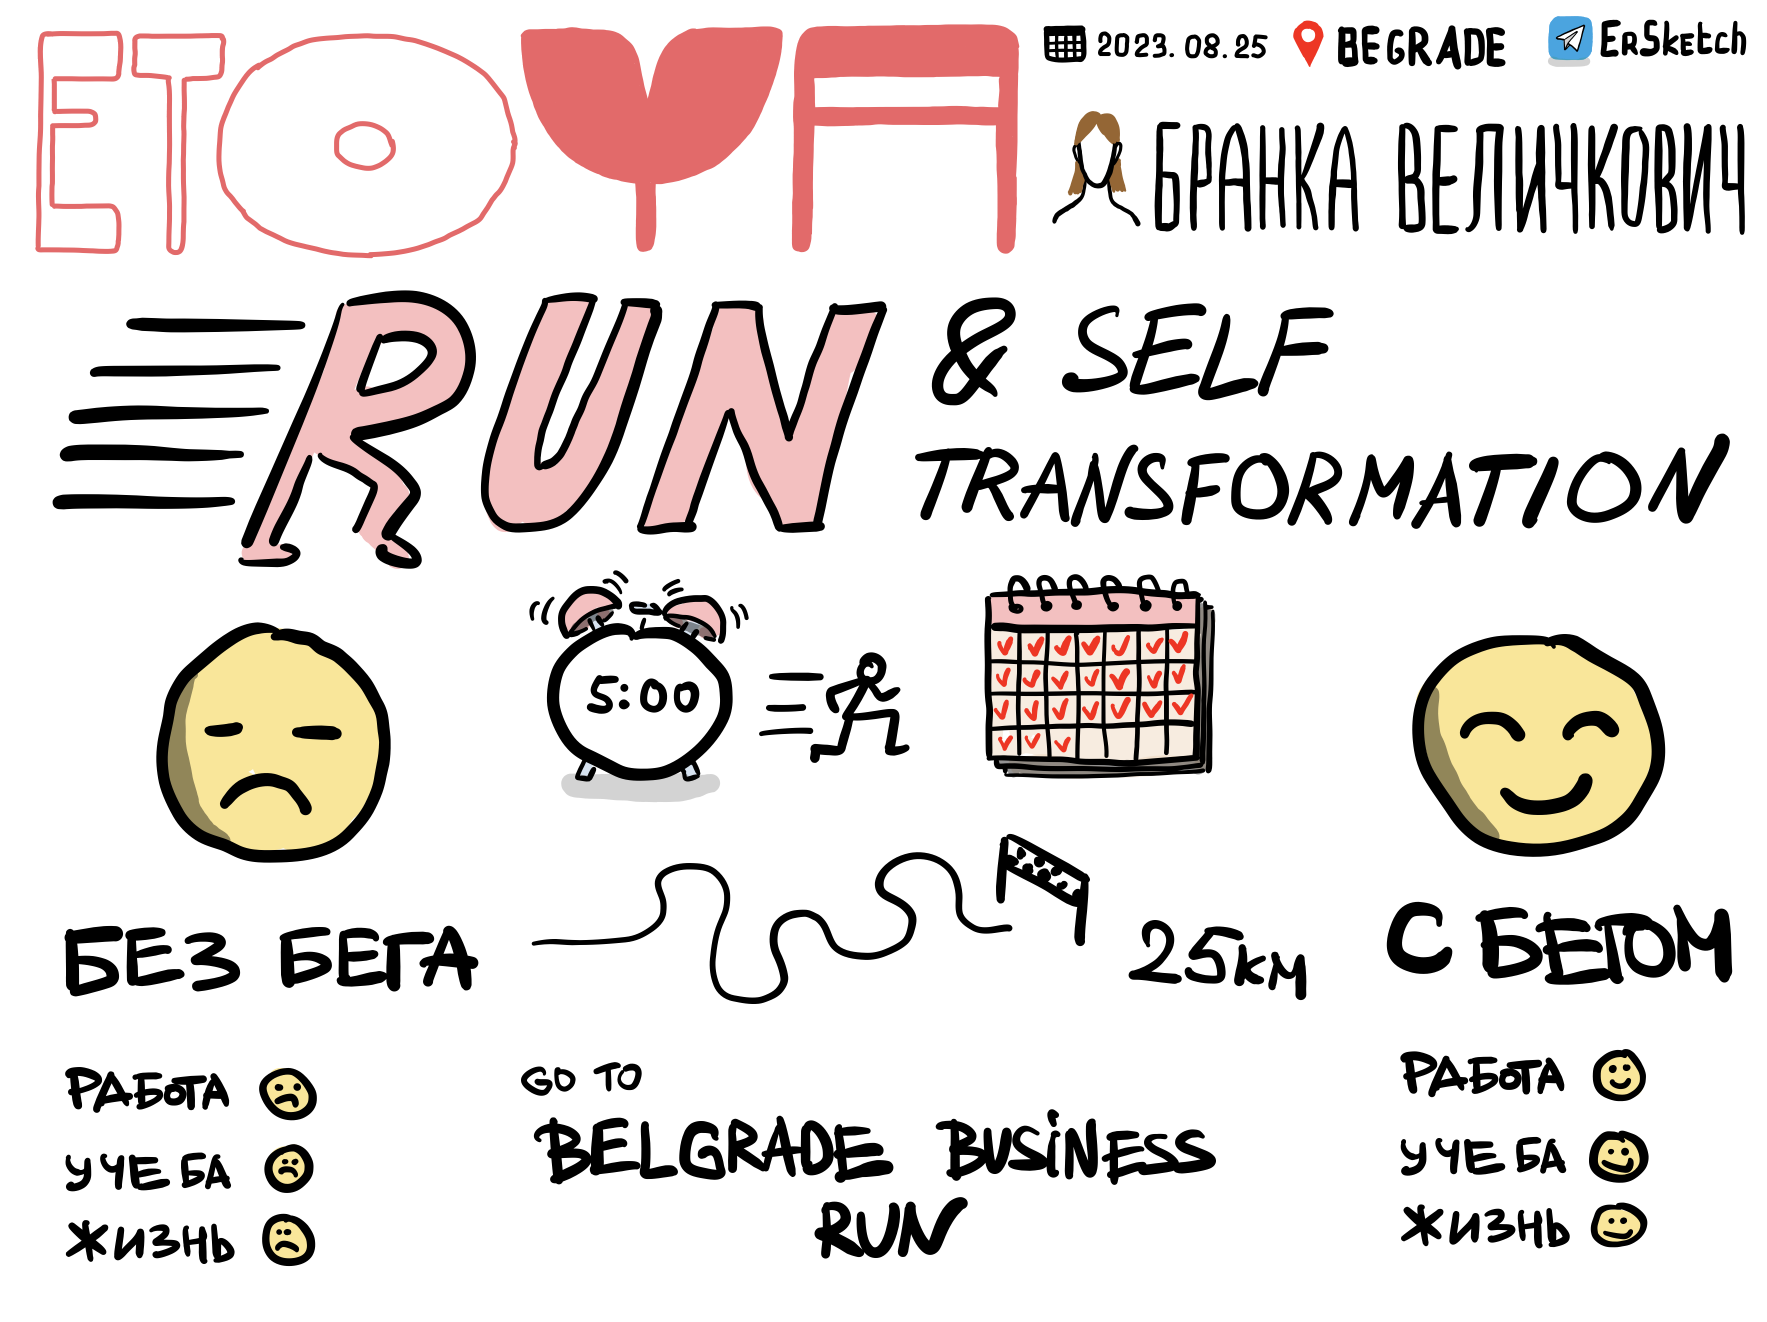 ETOYA
2023.08.25
BEGRADE
ErSketch
БРАНКА ВЕЛИЧКОВИЧ
RUN & SELF
TRANSFORMATION
5:00
25км
БЕЗ БЕГА
РАБОТА
УЧЕБА
ЖИЗНЬ
GO TO
BELGRADE BUSINESS
RUN
С БЕГОМ
РАБОТА
УЧЕБА
ЖИЗНЬ